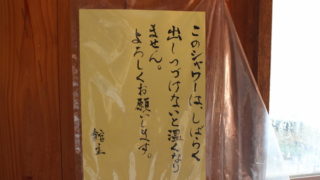 このシャワーは、しばらく
出しつづけないと温くなり
ません。
よろしくお願いします。
館主